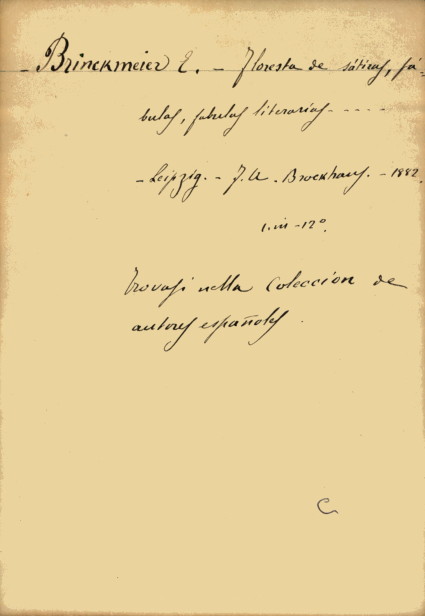 Brinckmeier E. - Floresta de sáticas, fá-
bulas, fabulas literarias - - - -
- Leipzig. - F. A. Brockhaus. - 1882.
1. in - 12°.
trovasi nella coleccion de
autores españoles.
C